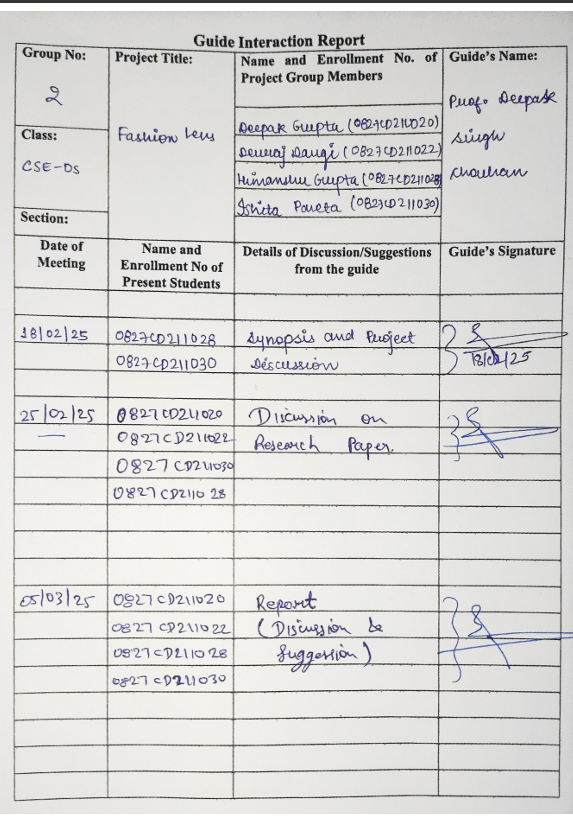 Guide Interaction Report
Group No:
2
Project Title:
Name and Enrollment No. of
Project Group Members
Guide's Name:
Prof. Deepak
Singh
Chouhan
Class:
CSE-DS
Fashion Lens
Deepak Gupta (0827CD211020)
Devraj Dangi (0827CD211022)
Himanshu Gupta (0827CD211028)
Ishita Pareta (0827CD211030)
Section:
Date of
Meeting
Name and
Enrollment No of
Present Students
Details of Discussion/Suggestions
from the guide
Guide's Signature
18/02/25
0827CD211028
Synopsis and Project
0827CD211030
Discussion
18/02/25
25/02/25
0827CD211020
Discussion on
0827CD211022
Research Paper.
0827CD211030
0827CD211028
05/03/25
0827CD211020
Report
0827CD211022
(Discussion &
0827CD211028
Suggession)
0827CD211030